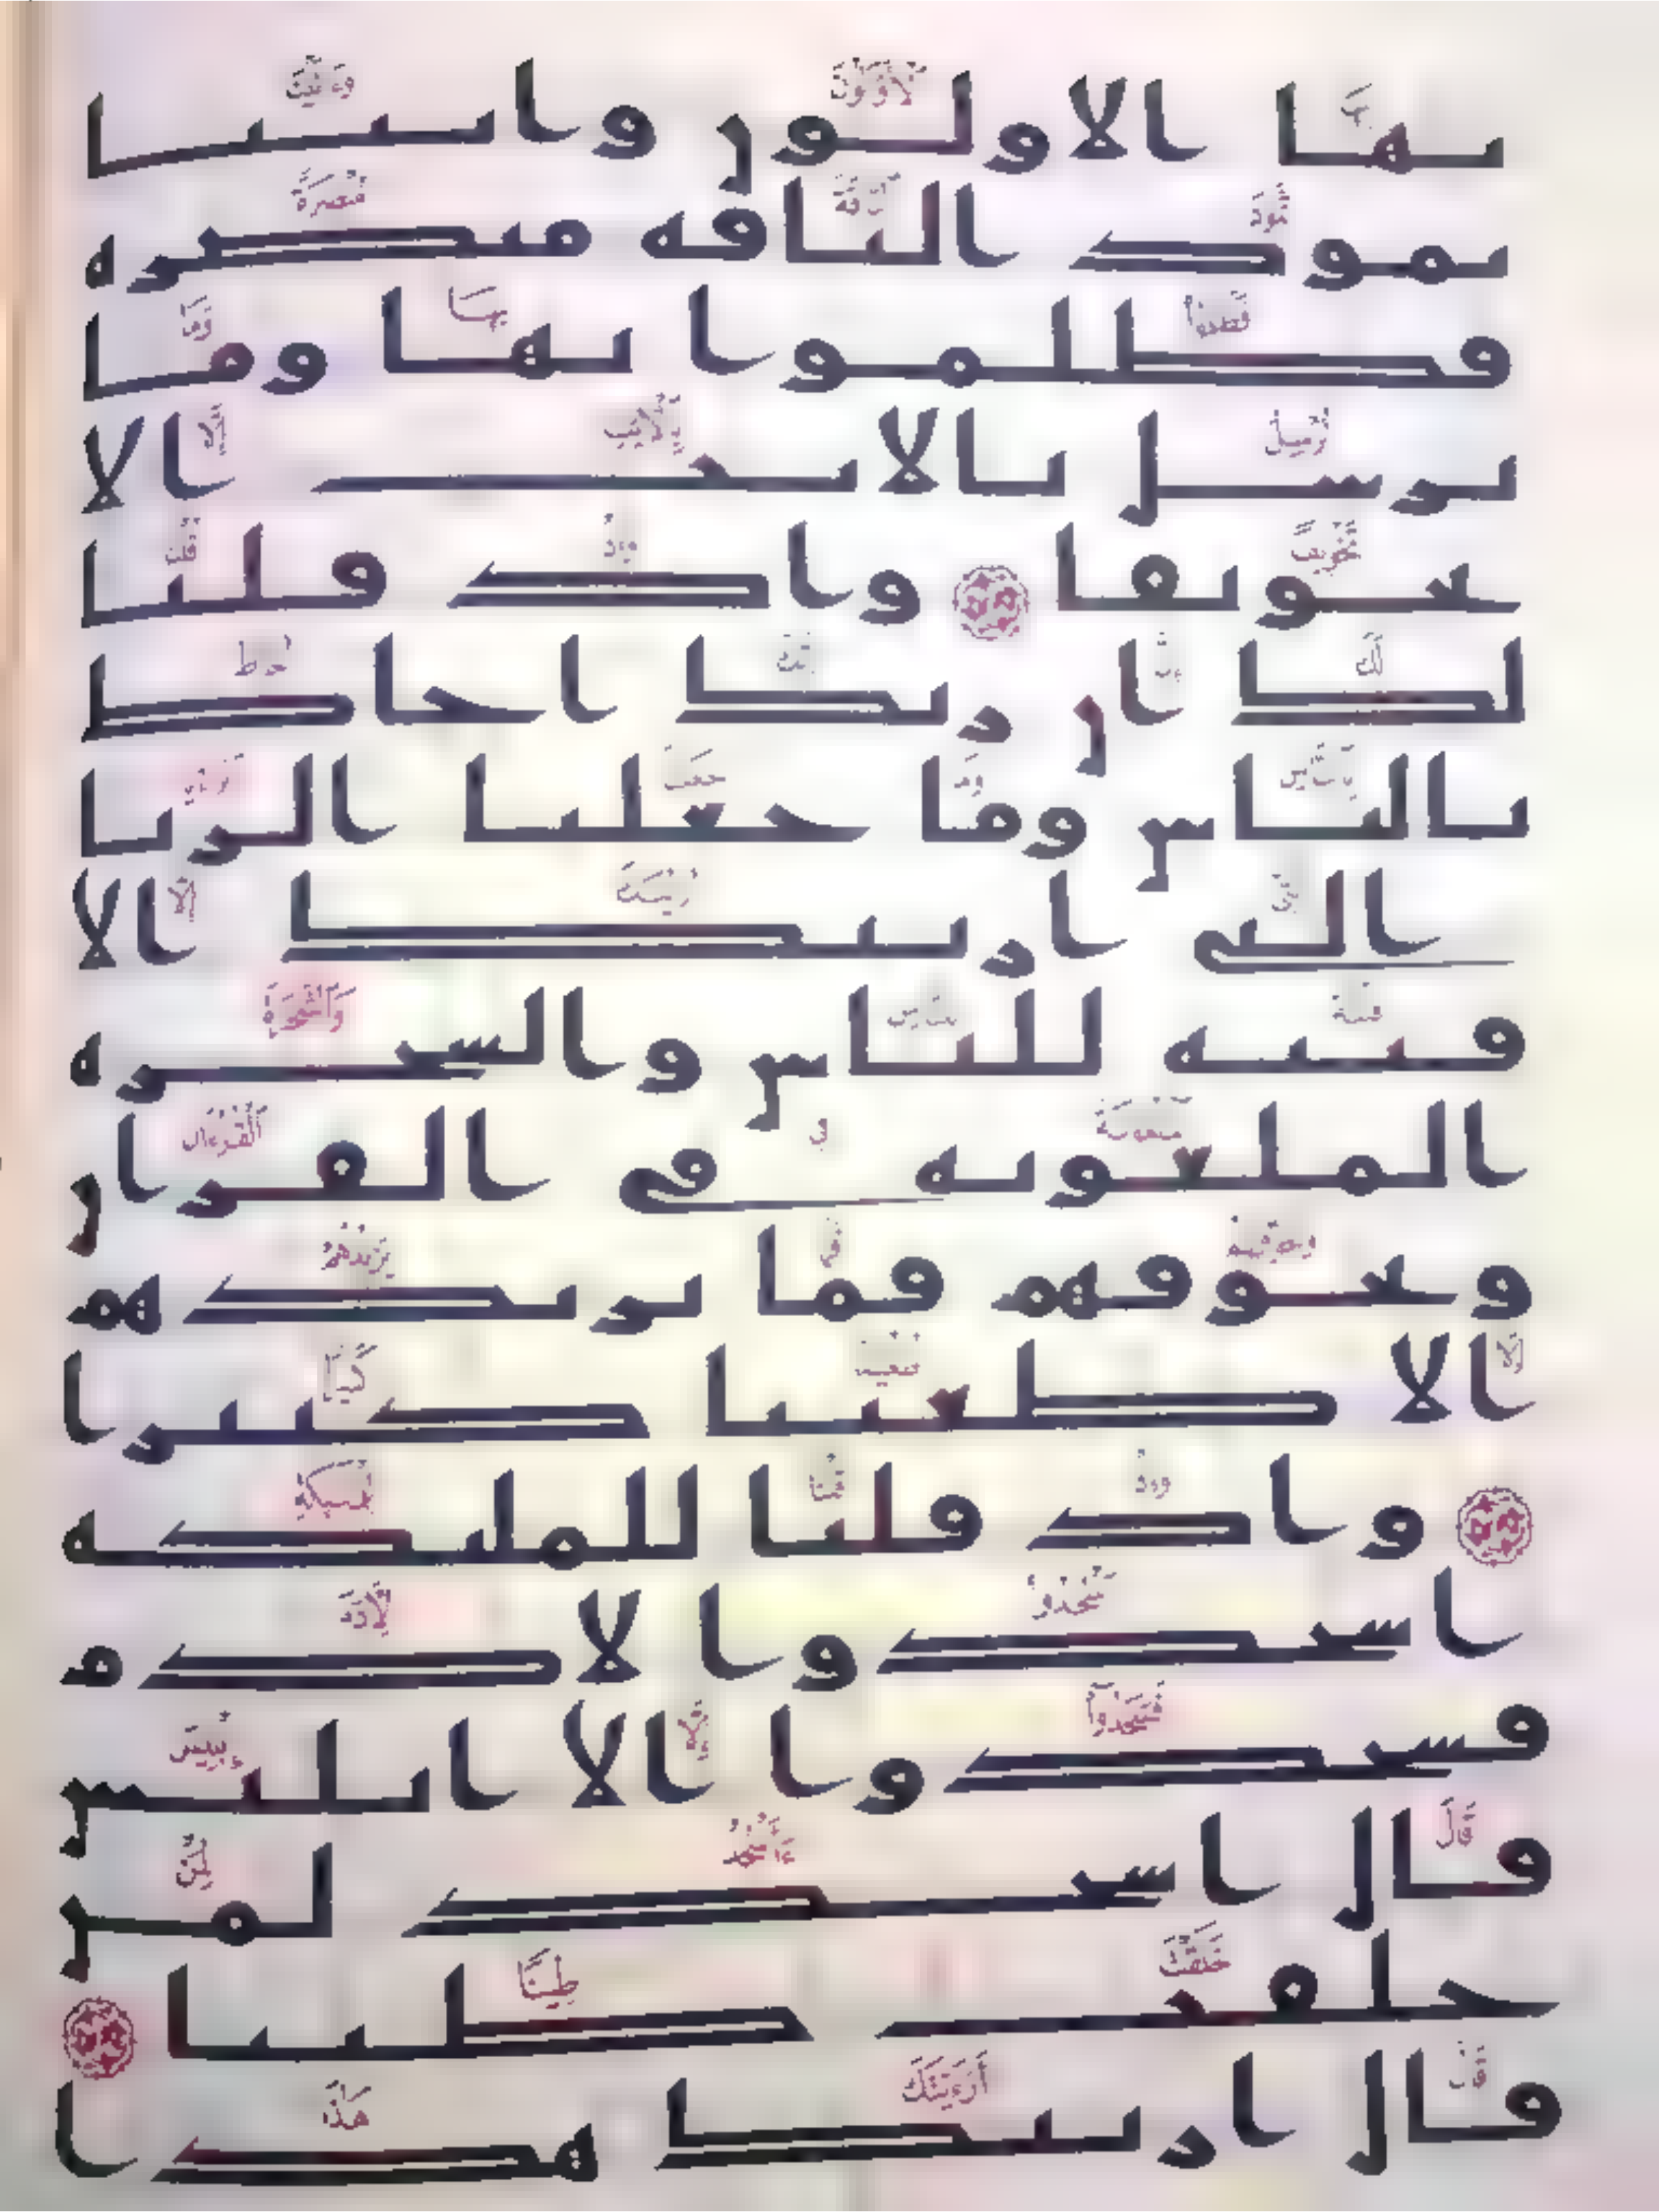 بها الاولون واتينا
ثمود الناقه مبصره
فظلموا بها وما
نرسل بالايت الا
تخويفا واذ قلنا
لك ان ربك احاط
بالناس وما جعلنا الريا
التى ارينك الا
فتنه للناس والشجره
الملعونه فى القران
ونخوفهم فما يزيدهم
الا طغينا كبيرا
واذ قلنا للمليكه
اسجدوا لادم
فسجدوا الا ابليس
قال اسجد لمن
خلقت طينا
قال اريتك هذا